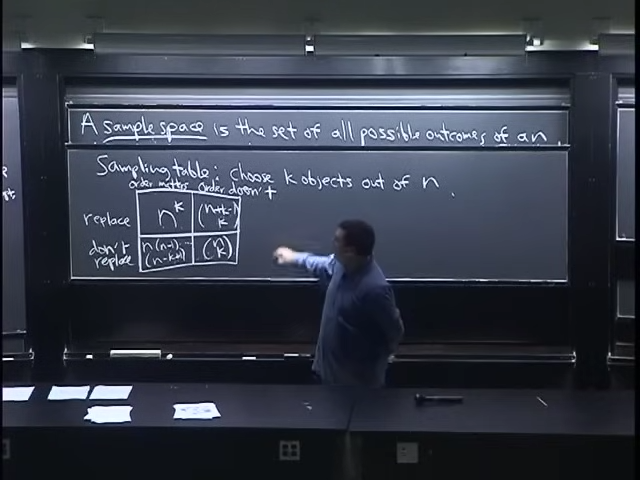 A sample space is the set of all possible outcomes of an
Sampling table: choose k objects out of n.
order matters order doesn't
replace n^k (n+k-1 k)
don't replace n(n-1)... (n-k+1) (n k)